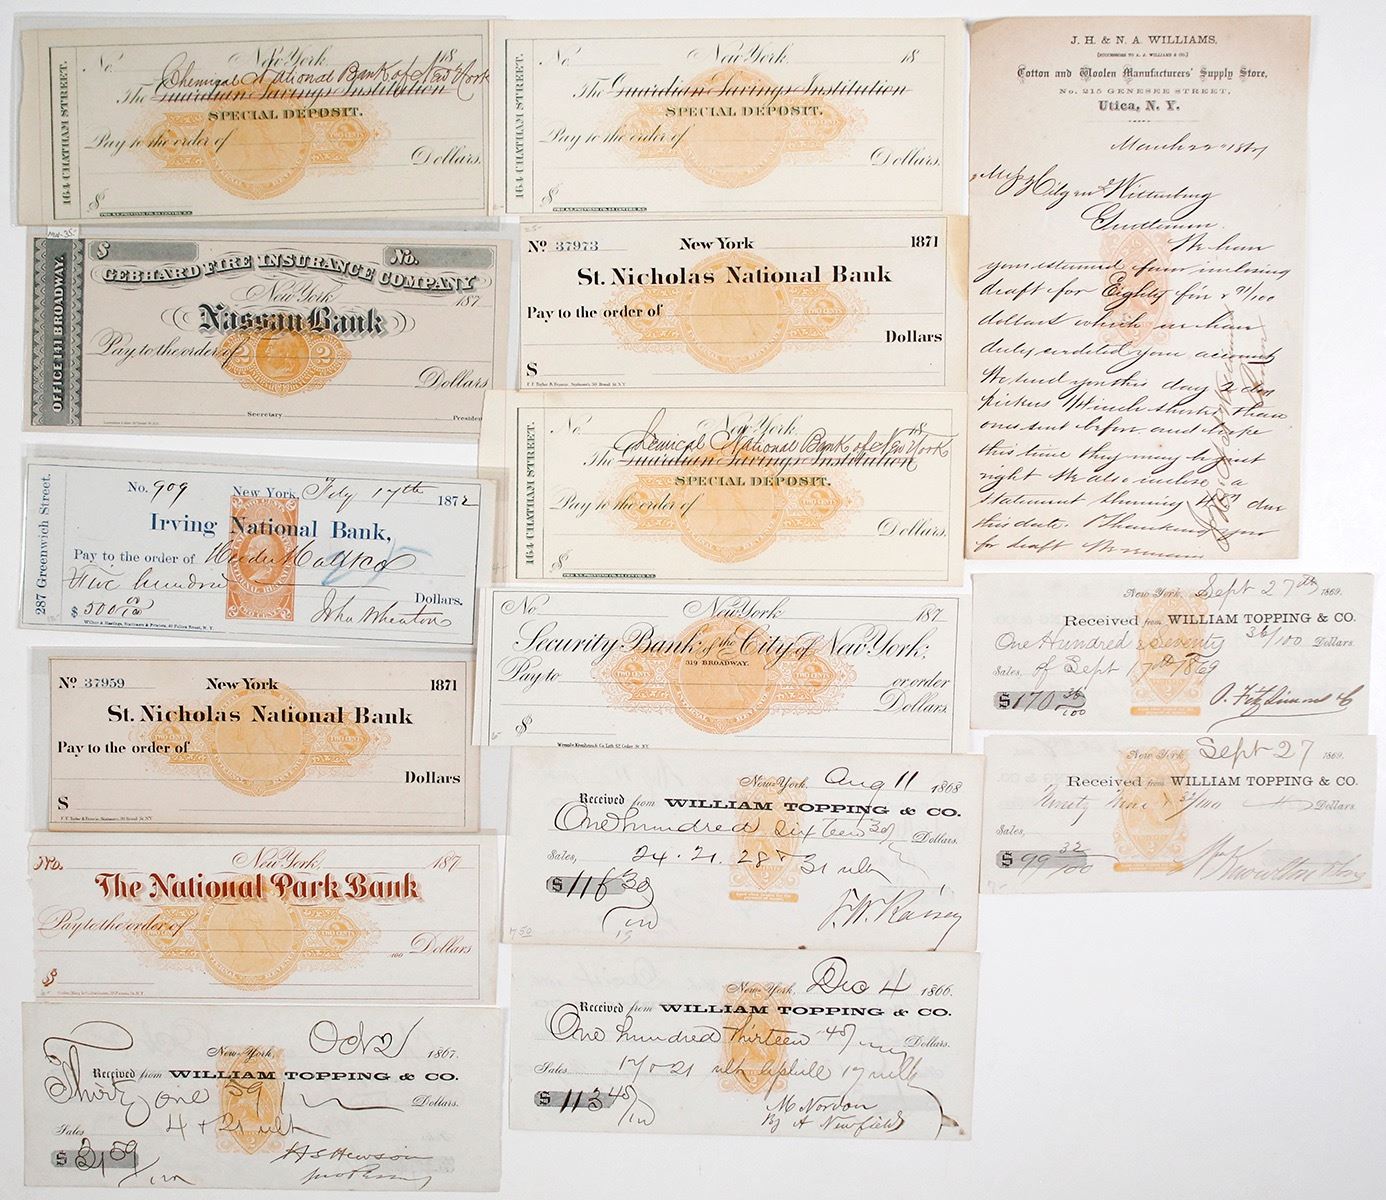 164 CHATHAM STREET.
No. New York 18
Chemical National Bank of New York
The Guardian Savings Institution
SPECIAL DEPOSIT.
Pay to the order of
Dollars.
$
164 CHATHAM STREET.
No. New York 18
The Guardian Savings Institution
SPECIAL DEPOSIT.
Pay to the order of
Dollars.
$
J. H. & N. A. WILLIAMS,
(SUCCESSORS TO A. J. WILLIAMS & CO.)
Cotton and Woolen Manufacturers' Supply Store,
No. 215 GENESEE STREET,
Utica, N. Y.
March 22nd 1867
Gentlemen
We have
your esteemed favor inclosing
draft for Eighty five & 71/100
dollars which we have
duly credited your account
We send you this day 2 doz
pickers 1/4 inch shorter than
ones sent before and hope
this time they may be just
right We also inclose a
statement showing due
this date. Thanking you
for draft We remain
OFFICE 141 BROADWAY.
$ No.
GEBHARD FIRE INSURANCE COMPANY
New York 187
Nassau Bank
Pay to the order of
2 2
Dollars
Secretary President
No 37973 New York 1871
St. Nicholas National Bank
Pay to the order of
Dollars
$
164 CHATHAM STREET.
No. New York 18
Chemical National Bank of New York
The Guardian Savings Institution
SPECIAL DEPOSIT.
Pay to the order of
Dollars.
$
287 Greenwich Street.
No. 909 New York, July 17th 1872
Irving National Bank,
Pay to the order of
Five hundred
Dollars.
$ 500 00/100 John Wheaton
No. New York 187
Security Bank of the City of New York:
319 BROADWAY.
Pay to or order
TWO CENTS TWO CENTS
Dollars.
$
New York. Sept 27th 1869.
Received from WILLIAM TOPPING & CO.
One Hundred & Seventy 36/100 Dollars
Sales, of Sept 17th 1869
$170 36/100
No 37959 New York 1871
St. Nicholas National Bank
Pay to the order of
Dollars
$
New York Sept 27 1869.
Received from WILLIAM TOPPING & CO.
Ninety Nine & 32/100 Dollars
Sales,
$ 99 32/100
New York. Aug 11 1868
Received from WILLIAM TOPPING & CO.
One hundred sixteen 30/ Dollars.
Sales, 24. 21. 28 & 31 ult
$ 116 30/100
No. New York, 187
The National Park Bank
Pay to the order of
Dollars
$
New York. Dec 4 1866.
Received from WILLIAM TOPPING & CO.
One hundred thirteen 48/100 Dollars.
Sales 17 & 21 ult
$ 113 48/100
M Nordon
By A Newfield
New York, Oct 2/ 1867.
Received from WILLIAM TOPPING & CO.
Thirty one 59/ Dollars.
Sales 4 & 21 ult
$ 31 59/100
H S Hewson